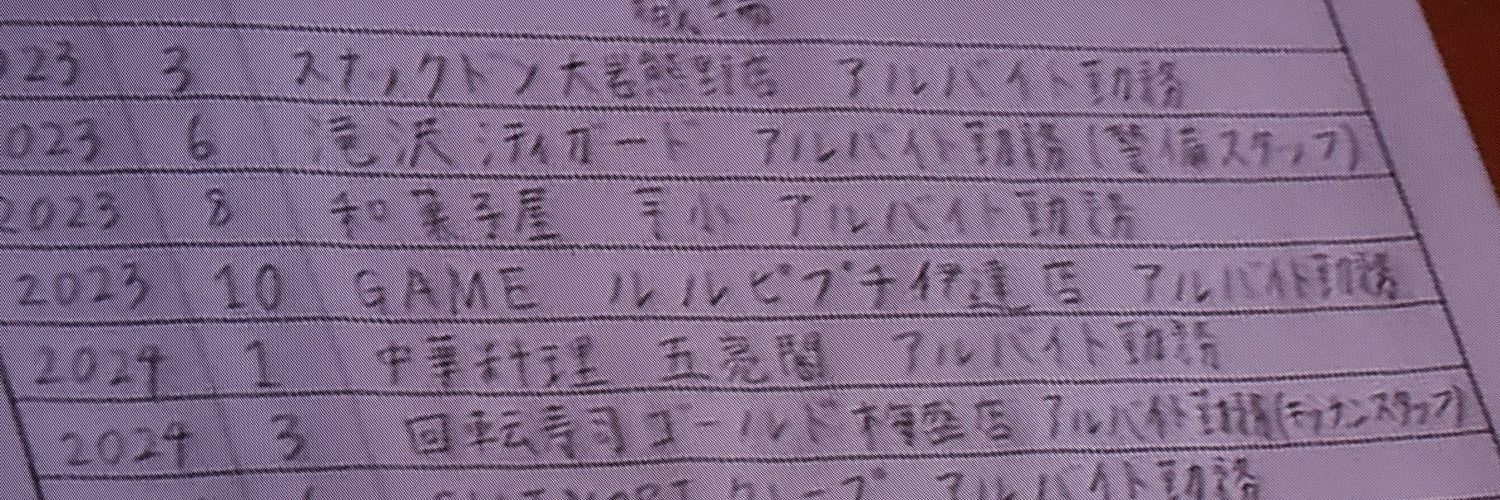 職場
2023 3 スナックドン大岩熊野店 アルバイト勤務
2023 6 滝沢シティガード アルバイト勤務(警備スタッフ)
2023 8 和菓子屋 アルバイト勤務
2023 10 GAME ルルピプチ伊達店 アルバイト勤務
2024 1 中華料理 五亮閣 アルバイト勤務
2024 3 回転寿司ゴールド 店 アルバイト勤務(キッチンスタッフ)
グループ アルバイト勤務